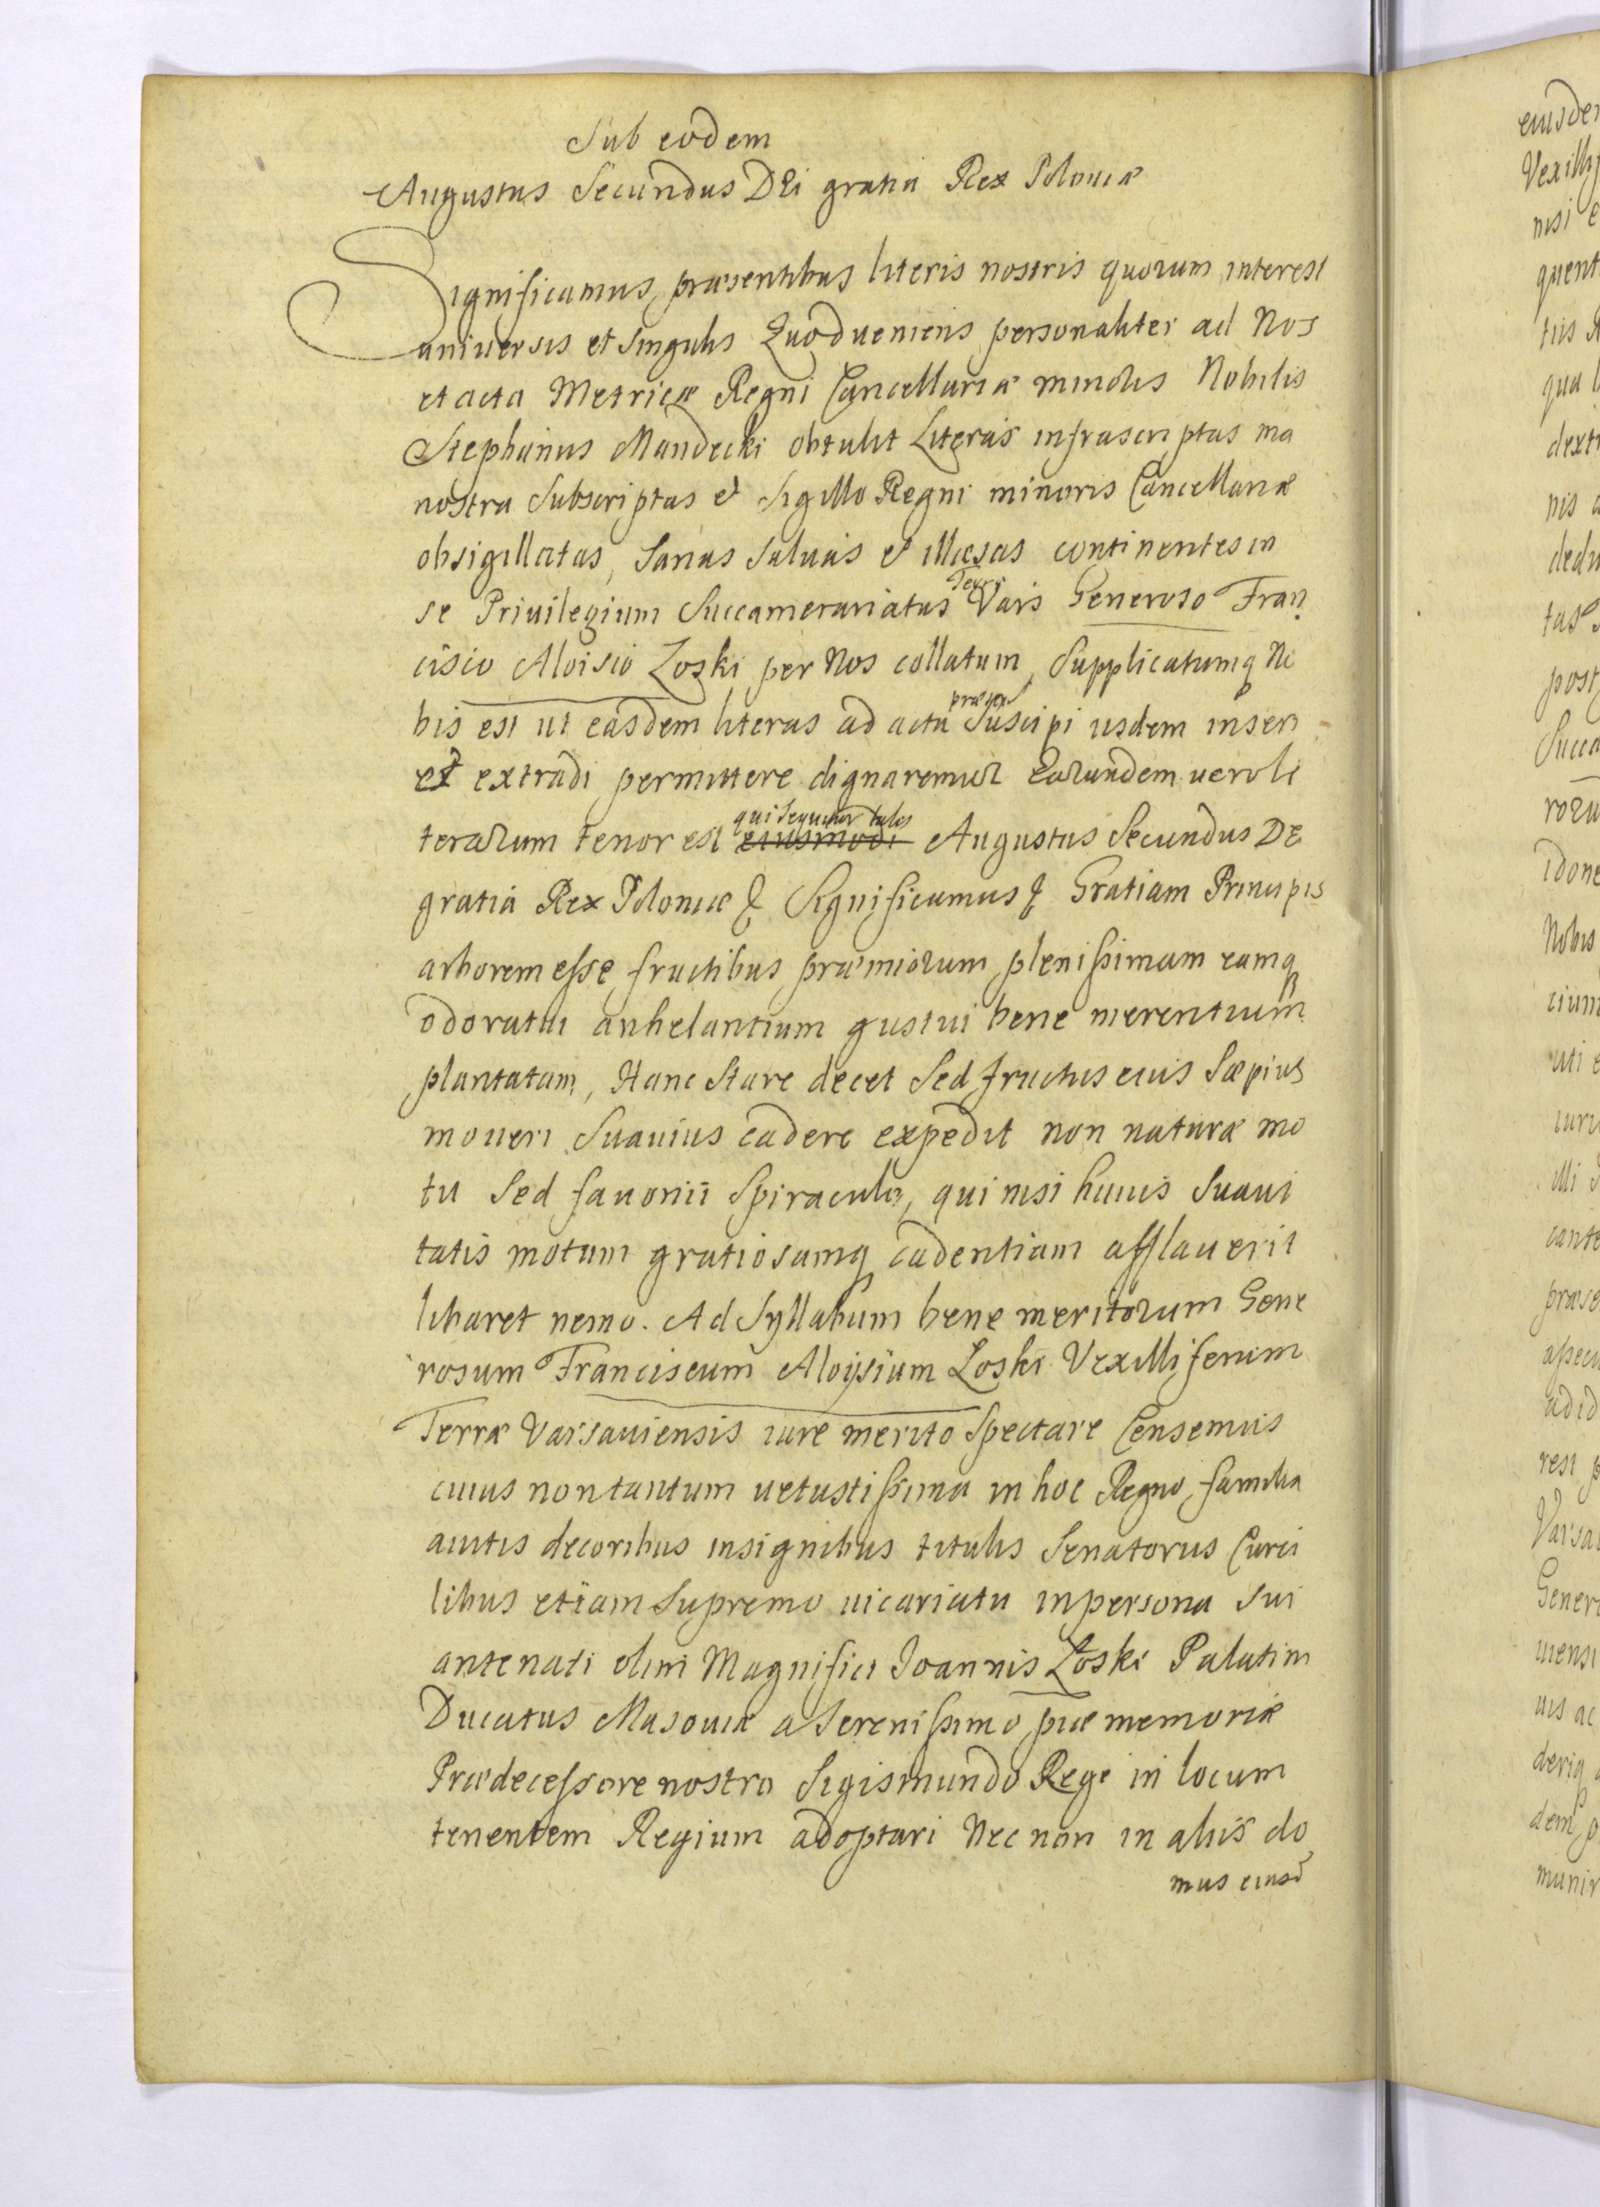 Sub eodem
Augustus Secundus DEi gratia Rex Poloniæ
Significamus præsentibus literis nostris quorum interest
universis et singulis Quod veniens personaliter ad Nos
et acta Metricæ Regni Cancellariæ minoris Nobilis
Stephanus Mandecki obtulit Literas infrascriptas ma
nostra Subscriptas et Sigillo Regni minoris Cancellariæ
obsigillatas, Sanas Salvas et illæsas continentes in
se Privilegium Succamerariatus Terræ Vars Generoso Fran
cisco Aloisio Loski per Nos collatum, Supplicatumq No
bis est ut easdem literas ad acta præsen Suscipi iisdem inseri
et extradi permittere dignaremur Earundem vero li
terarum tenor est eiusmodi qui sequitur talis Augustus Secundus DE
gratia Rex Poloniæ & Significamus & Gratiam Principis
arborem esse fructibus præmiorum plenissimam eamq
odoratui anhelantium gustui bene merentium
plantatam, Hanc Stare decet Sed fructus eius Sæpius
moveri Suavius cadere expedit non naturæ mo
tu Sed favonii Spiraculo, qui nisi huius Suavi
tatis motum gratiosamq cadentiam afflaverit
libaret nemo. Ad Syllabum bene meritorum Gene
rosum Franciscum Aloysium Loski Vexilliferum
Terræ Varsaviensis iure merito Spectare Censemus
cuius non tantum vetustissima in hoc Regno familia
avitis decoribus insignibus titulis Senatoriis Curu
libus etiam Supremo vicariatu in persona Sui
antenati olim Magnifici Joannis Loski Palatini
Ducatus Masoviæ a Serenissimo piæ memoriæ
Prædecessore nostro Sigismundo Rege in locum
tenentem Regium adoptari Nec non in aliis do
mus eiusd